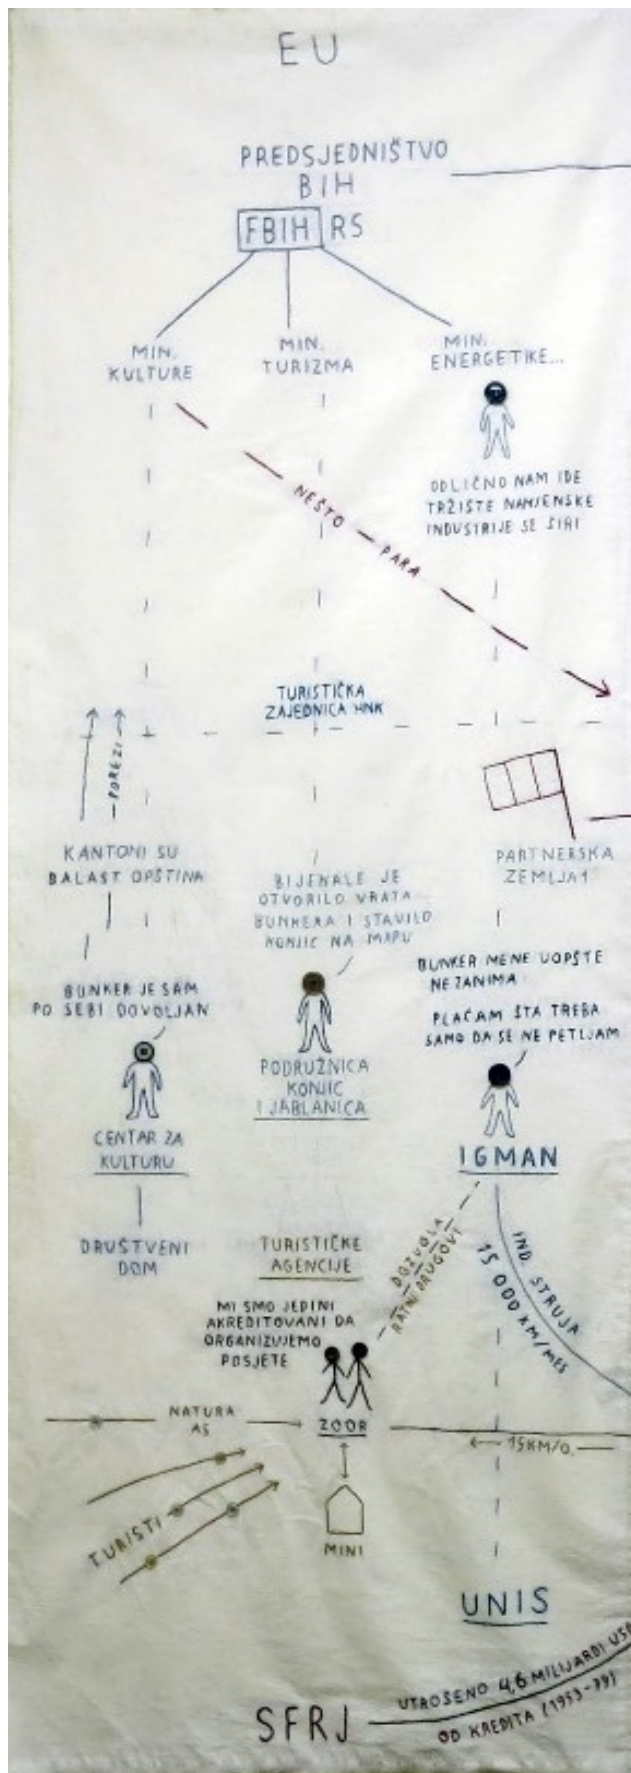 EU
PREDSJEDNIŠTVO
BIH
FBIH RS
MIN.
KULTURE
MIN.
TURIZMA
MIN.
ENERGETIKE...
ODLIČNO NAM IDE
TRŽIŠTE NAMJENSKE
INDUSTRIJE SE ŠIRI
NEŠTO — PARA
TURISTIČKA
ZAJEDNICA HNK
POREZI
KANTONI SU
BALAST OPŠTINA
PARTNERSKA
ZEMLJA 1
BIJENALE JE
OTVORILO VRATA
BUNKERA I STAVILO
KONJIC NA MAPU
BUNKER MENE UOPŠTE
NE ZANIMA
BUNKER JE SAM
PO SEBI DOVOLJAN
PLAĆAM ŠTA TREBA
SAMO DA SE NE PETLJAM
PODRUŽNICA
KONJIC
I JABLANICA
CENTAR ZA
KULTURU
IGMAN
DRUŠTVENI
DOM
TURISTIČKE
AGENCIJE
DOZVOLA
RATNI DRUGOVI
IND. STRUJA
15 000 KM/MES
MI SMO JEDINI
AKREDITOVANI DA
ORGANIZUJEMO
POSJETE
NATURA
AS
ZOOR
15KM/O.
TURISTI
MINI
UNIS
UTROŠENO 4,6 MILIJARDI USD
OD KREDITA (1953-79)
SFRJ